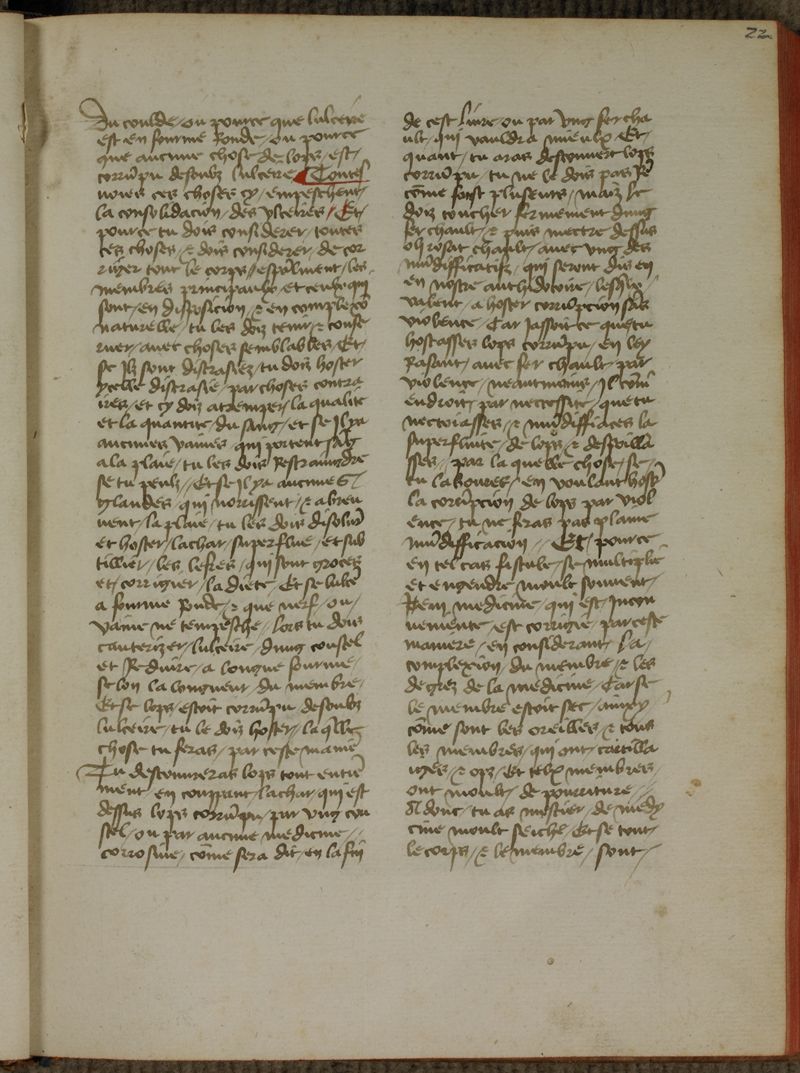 22
Du coulde / ou pource que lulcere
est en fourme Ronde / ou pource
que aucune chose de lops / est /
corrũpu desoubz lulcere / Toutes
uoies ces choses cy / empeschent /
la consolidacion / des vlceres / Et /
pource tu dois considerer / toutes
ces choses / & dois considerer / de cor
riger tout le corps / espãlment / les
membres principaulx / et ceulx qui
sont / en disposicion / & en complexõ
naturelle / tu les doiz tenir / & conse
ruer / auec choses semblables / Et /
se Ilz sont distrasiez / tu dois hoster
ycelle distrasie / par choses contra
ires / et cy doiz atremper / la qualite
et la quantite / du sang / et se Il ya
aucunes vaines / qui portent sãg
a la plaie / tu les dois Restraindre
se tu peulz // Et se Il ya aucunes
glandes / qui norrissent / & abreu
uent / la plaie / tu les dois disoluer
et hoster / lachar / superflue / et sub
tillier / les lefres / qui sont grosses
et / corrigier / la diete / Et se lulce
a fourme Ronde / & que nerf / ou /
vaine ne tempesche / lors tu dois
cauterizer / lulcere / dung coustel
et Reduire / a longue fourme /
selon la longueur / du membre /
Et se lops / estoit corrũpu / desoubz
lulcere / tu le doiz hoster / la q̃lle
chose tu feras / par ceste manie
Tu descouureras lops tout entie
ment / en coupant / lachar / qui est
dessus lops corrũpu / par vng cou
stel / ou par aucune medicine //
corrosiue / cõme sera dit / en la fin
de cest liure / ou par vng fer cha
ult / qui vauldra mieulx / Et /
quant / tu aras descouuert lops
corrũpu / tu ne le dois pas Re
cõme font pluseurs / maiz le
doiz toucher fermement dung
fer chault / & puis mectre dessus
oli rosat chault / auec vng des
mũdifficatifz / qui seront dis en
en nostre anthidotoire / lesq̃lz /
valent / a hoster corrũpcion sãs
violence / Car Jassoit ce que tu
hostasses lops corrũpu / en ley
Rasant / auec fer chault / par
violence / neantmains / Il cõui
endroit / par neccessite / que tu
nectoiasses / & mũdiffiaces la
superfluite / de lops / & despoilla
sses / par la quelle chose / se /
tu laboures / en voulant host
la corrũpcion de lops par viol
ence / tu ne feras pas plaine
mũdifficacion // Et / pource
en tel cas fistule / se multiplie
et engendre moult souuent /
Item medicine / qui est / Incon
ueniente / est corrigie / par ceste
maniere / en considerant / La /
complexion / du membre / & les
degrez de la medicine / Car se
le membre estoit sec / aussy
cõme sont les oreilles / & tous
les membres / qui ont / cartilla
iges / & ops / Et telx membres /
ont moult / de pourriture //
Adonc / tu as mestier / de medy
cine moult seiche / Et se tout /
le corps / & le membre / sont /